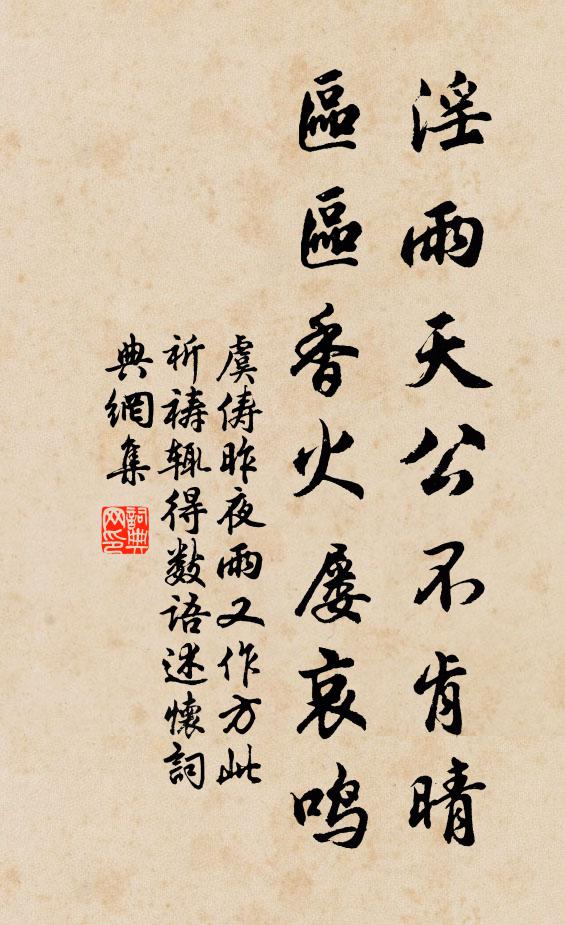 淫雨天公不肯晴
區區香火屡哀鸣
虞俦昨夜雨又作方此
祈禱辄得数语述懷詞
典網集
詞典网印